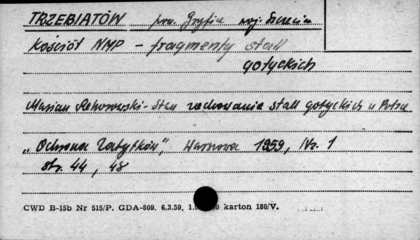 TRZEBIATÓW pow. Gryfice woj. Szczecin
Kościół NMP - fragmenty stall
gotyckich
Marian Rehorowski - Stan zachowania stall gotyckich w Polsce
„Ochrona Zabytków", Warszawa 1959, Nr. 1
str. 44, 48
CWD B-15b Nr 515/P. GDA-809. 6.3.59. karton 180/V.